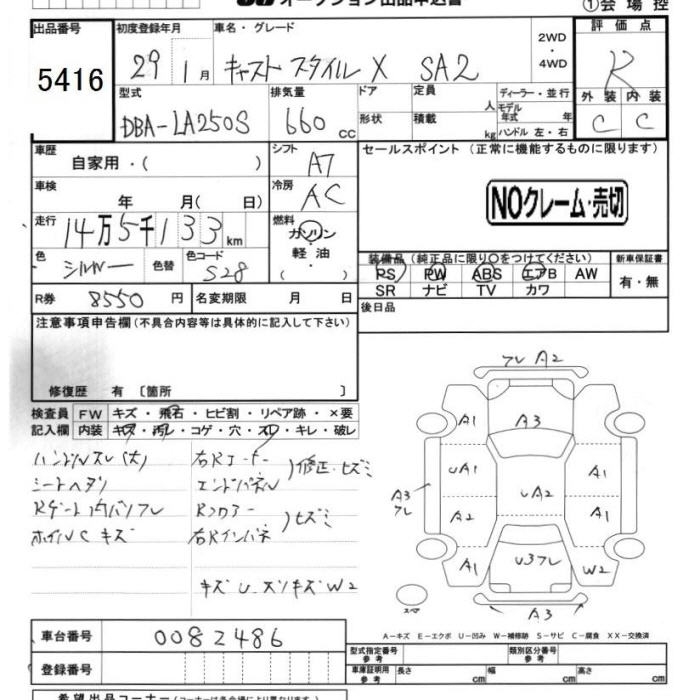 オークション出品申込書
①会場控
出品番号 5416
初度登録年月 29 1月
車名・グレード キャスト スタイル X SA2
2WD・4WD
評価点 R
外装 C 内装 C
型式 DBA-LA250S
排気量 660 cc
ドア
形状
定員 人
積載 kg
ディーラー・並行
モデル年式 年
ハンドル 左・右
車歴 自家用・( )
シフト A7
セールスポイント(正常に機能するものに限ります)
NOクレーム・売切
車検 年 月( 日)
冷房 AC
走行 14万5千133km
燃料 ガソリン・軽油・( )
色 シルバー 色替
色コード S28
装備品(純正品に限り○をつけてください)
PS PW ABS エアB AW
SR ナビ TV カワ
新車保証書 有・無
R券 8550円
名変期限 月 日
後日品
注意事項申告欄(不具合内容等は具体的に記入して下さい)
修復歴 有〔箇所 〕
検査員記入欄
FW キズ・飛石・ヒビ割・リペア跡・×要
内装 キズ・汚レ・コゲ・穴・スレ・キレ・破レ
ハンドルスレ(大)
シートヘタリ
Rゲート内バリフレ
ホイルC キズ
右Rコーナー
エンドパネル
)修正・ヒズミ
Rフロアー
右Rインパネ
)ヒズミ
キズ U・スリキズ W2
フレ A2
A1 A3 A1
UA1 A1
A3 フレ
UA2
A2 A1
A1 U3フレ W2
A3
スペア
A-キズ E-エクボ U-凹み W-補修跡 S-サビ C-腐食 XX-交換済
車台番号 0082486
登録番号
型式指定番号 参考
類別区分番号 参考
車庫証明用 参考 長さ cm 幅 cm 高さ cm
希望出品コーナー